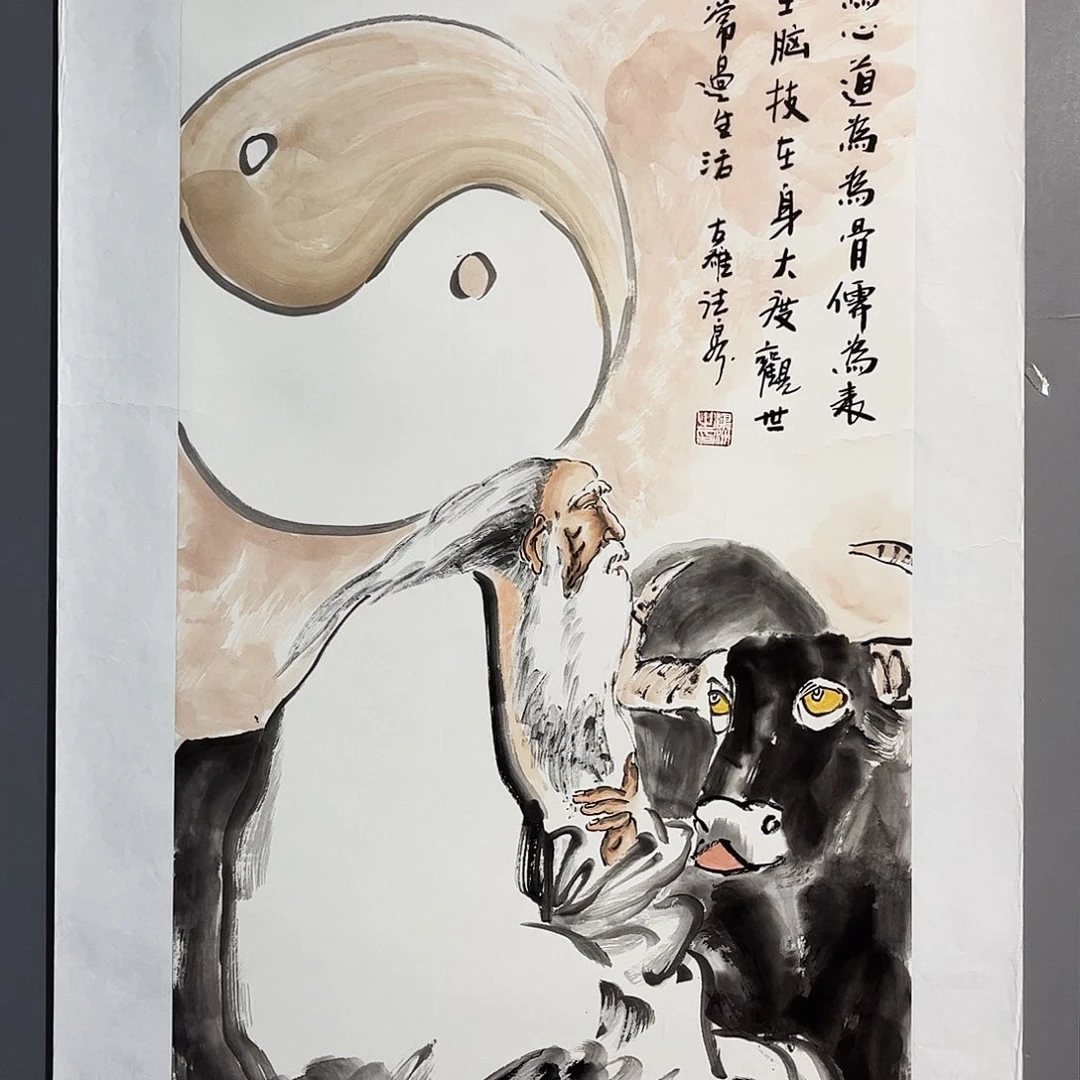 為心道為為骨儒為表
脑技在身大度觀世
常過生活 古雒